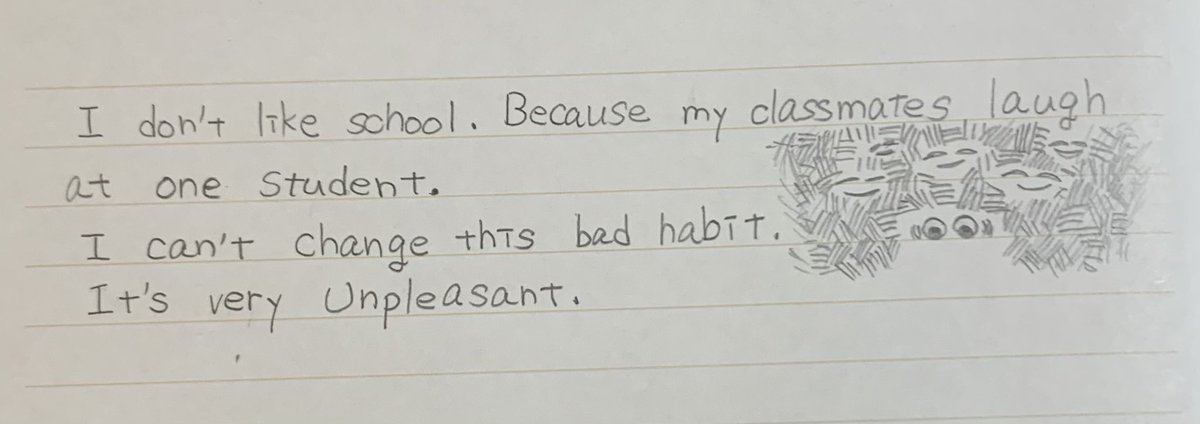 I don't like school. Because my classmates laugh
at one student.
I can't change this bad habit.
It's very Unpleasant.